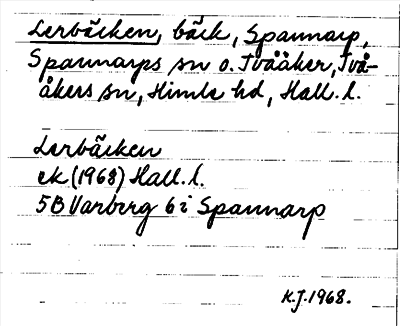 Lerbäcken, bäck, Spannarp,
Spannarps sn o. Tvååker, Två-
åkers sn, Himle hd, Hall. l.
Lerbäcken
ek (1968) Hall. l.
5B Varberg 6i Spannarp
K.J. 1968.